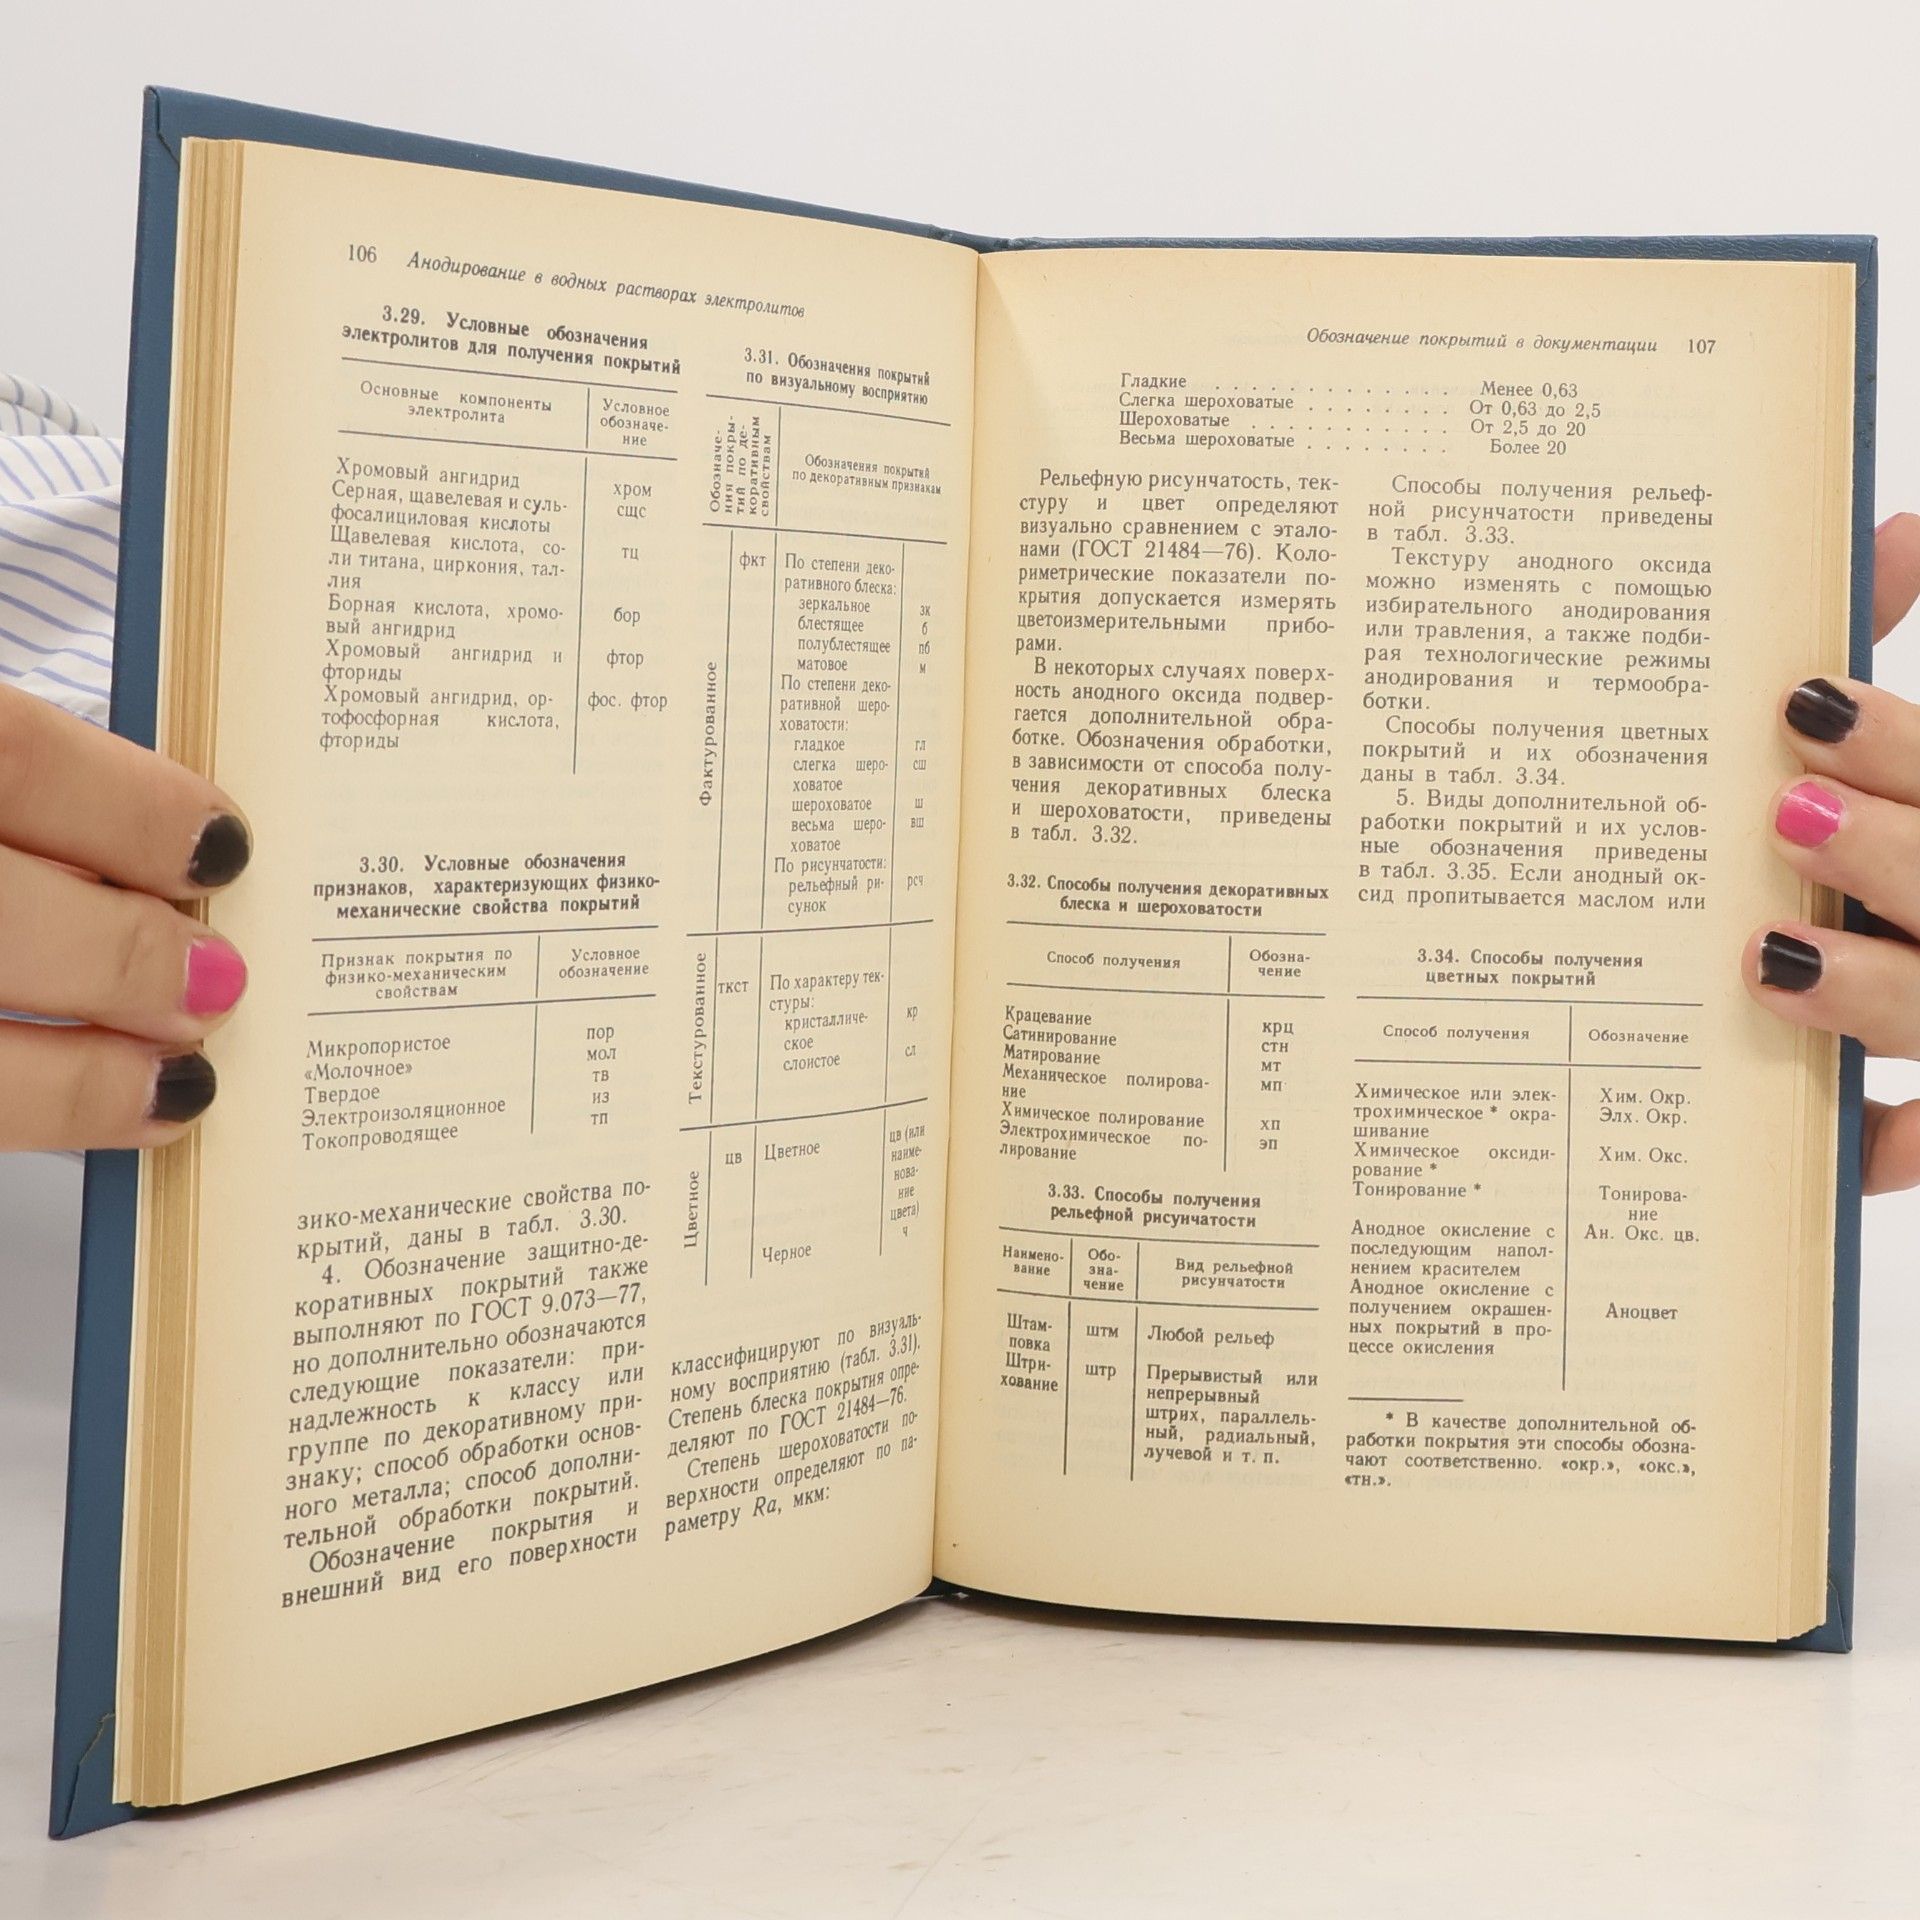 106 Анодирование в водных растворах электролитов
3.29. Условные обозначения
электролитов для получения покрытий
Основные компоненты
электролита
Условное
обозначе-
ние
Хромовый ангидрид хром
Серная, щавелевая и суль- сщс
фосалициловая кислоты
Щавелевая кислота, со- тц
ли титана, циркония, тал-
лия
Борная кислота, хромо- бор
вый ангидрид
Хромовый ангидрид и фтор
фториды
Хромовый ангидрид, ор- фос. фтор
тофосфорная кислота,
фториды
3.30. Условные обозначения
признаков, характеризующих физико-
механические свойства покрытий
Признак покрытия по
физико-механическим
свойствам
Условное
обозначение
Микропористое пор
«Молочное» мол
Твердое тв
Электроизоляционное из
Токопроводящее тп
зико-механические свойства по-
крытий, даны в табл. 3.30.
4. Обозначение защитно-де-
коративных покрытий также
выполняют по ГОСТ 9.073—77,
но дополнительно обозначаются
следующие показатели: при-
надлежность к классу или
группе по декоративному при-
знаку; способ обработки основ-
ного металла; способ дополни-
тельной обработки покрытий.
Обозначение покрытия и
внешний вид его поверхности
3.31. Обозначения покрытий
по визуальному восприятию
Обозначе-
ния покры-
тий по де-
коративным
свойствам
Обозначения покрытий
по декоративным признакам
Фактурованное
фкт
По степени деко-
ративного блеска:
зеркальное зк
блестящее б
полублестящее пб
матовое м
По степени деко-
ративной шеро-
ховатости:
гладкое гл
слегка шеро- сш
ховатое
шероховатое ш
весьма шеро- вш
ховатое
По рисунчатости:
рельефный ри- рсч
сунок
Текстурованное
ткст
По характеру тек-
стуры:
кристалличе- кр
ское
слоистое сл
Цветное
цв
Цветное
цв (или
наиме-
нова-
ние
цвета)
Черное ч
классифицируют по визуаль-
ному восприятию (табл. 3.31).
Степень блеска покрытия опре-
деляют по ГОСТ 21484—76.
Степень шероховатости по-
верхности определяют по па-
раметру Ra, мкм:
Обозначение покрытий в документации 107
Гладкие . . . . . . . . . . . . . Менее 0,63
Слегка шероховатые . . . . . . . . От 0,63 до 2,5
Шероховатые . . . . . . . . . . . От 2,5 до 20
Весьма шероховатые . . . . . . . . Более 20
Рельефную рисунчатость, тек-
стуру и цвет определяют
визуально сравнением с этало-
нами (ГОСТ 21484—76). Коло-
риметрические показатели по-
крытия допускается измерять
цветоизмерительными прибо-
рами.
В некоторых случаях поверх-
ность анодного оксида подвер-
гается дополнительной обра-
ботке. Обозначения обработки,
в зависимости от способа полу-
чения декоративных блеска
и шероховатости, приведены
в табл. 3.32.
3.32. Способы получения декоративных
блеска и шероховатости
Способ получения
Обозна-
чение
Крацевание крц
Сатинирование стн
Матирование мт
Механическое полирова- мп
ние
Химическое полирование хп
Электрохимическое по- эп
лирование
3.33. Способы получения
рельефной рисунчатости
Наимено-
вание
Обо-
зна-
чение
Вид рельефной
рисунчатости
Штам- штм Любой рельеф
повка
Штри- штр Прерывистый или
хование непрерывный
штрих, параллель-
ный, радиальный,
лучевой и т. п.
Способы получения рельеф-
ной рисунчатости приведены
в табл. 3.33.
Текстуру анодного оксида
можно изменять с помощью
избирательного анодирования
или травления, а также подби-
рая технологические режимы
анодирования и термообра-
ботки.
Способы получения цветных
покрытий и их обозначения
даны в табл. 3.34.
5. Виды дополнительной об-
работки покрытий и их услов-
ные обозначения приведены
в табл. 3.35. Если анодный ок-
сид пропитывается маслом или
3.34. Способы получения
цветных покрытий
Способ получения Обозначение
Химическое или элек- Хим. Окр.
трохимическое * окра- Элх. Окр.
шивание
Химическое оксиди- Хим. Окс.
рование *
Тонирование * Тонирова-
ние
Анодное окисление с Ан. Окс. цв.
последующим напол-
нением красителем
Анодное окисление с
получением окрашен- Аноцвет
ных покрытий в про-
цессе окисления
* В качестве дополнительной об-
работки покрытия эти способы обозна-
чают соответственно. «окр.», «окс.»,
«тн.».